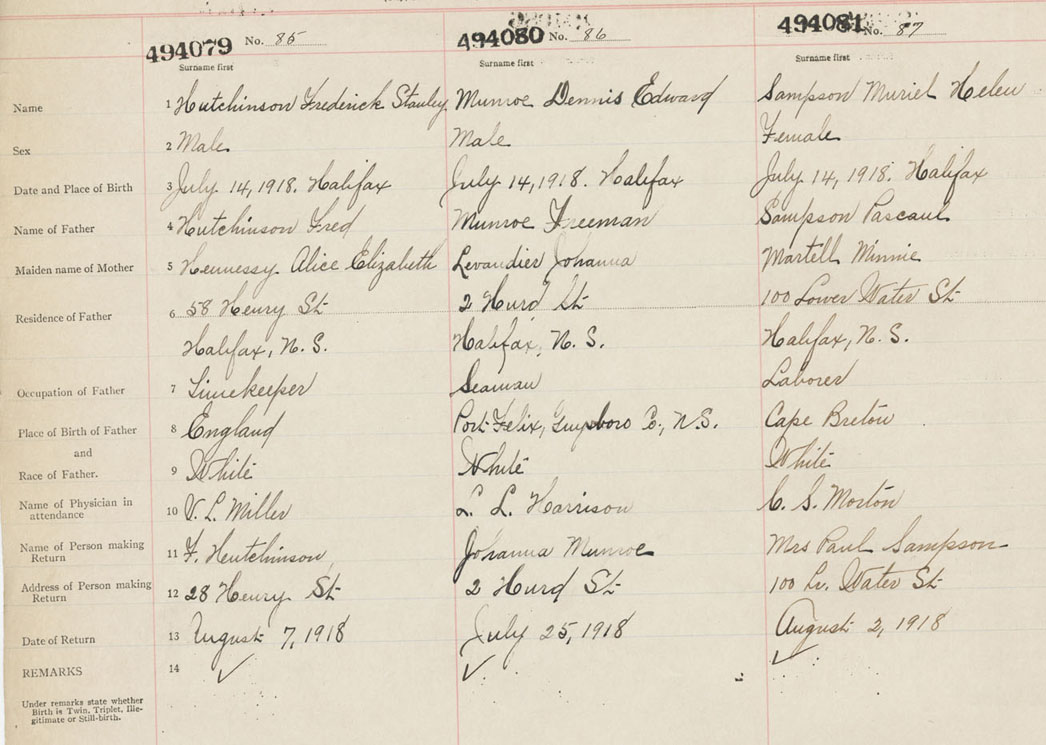 494079 No. 85
494080 No. 86
494081 No. 87
Surname first
Surname first
Surname first
Name 1 Hutchinson Frederick Stanley Munroe Dennis Edward Sampson Muriel Helen
Sex 2 Male Male Female
Date and Place of Birth 3 July 14, 1918. Halifax July 14, 1918. Halifax July 14, 1918. Halifax
Name of Father 4 Hutchinson Fred Munroe Freeman Sampson Pascaul
Maiden name of Mother 5 Hennessy Alice Elizabeth Levandier Johanna Martell Minnie
Residence of Father 6 58 Henry St 2 Hurd St 100 Lower Water St
Halifax, N.S. Halifax, N.S. Halifax, N.S.
Occupation of Father 7 Timekeeper Seaman Laborer
Place of Birth of Father 8 England Port Felix, Guysboro Co., N.S. Cape Breton
and
Race of Father. 9 White White White
Name of Physician in
attendance 10 V. L. Miller L. L. Harrison C. S. Morton
Name of Person making
Return 11 F. Hutchinson Johanna Munroe Mrs Paul Sampson
Address of Person making
Return 12 28 Henry St 2 Hurd St 100 Lr. Water St
Date of Return 13 August 7, 1918 July 25, 1918 August 2, 1918
REMARKS 14 ✓ ✓ ✓
Under remarks state whether
Birth is Twin, Triplet, Ille-
gitimate or Still-birth.